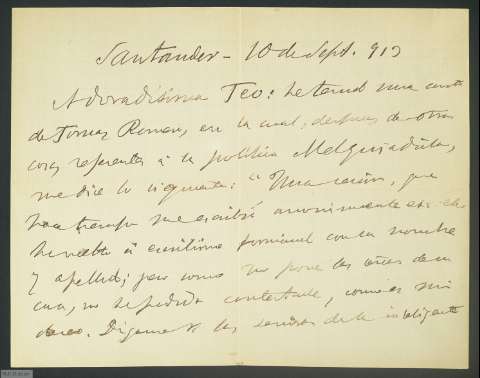 Santander - 10 de Sept. 913
Adoradísima Teo: he tenido una carta
de Tomas Roman, en la cual, despues de otras
cosas referentes á la política Melquiadista,
me dice lo siguiente: "Una señora, que
hace tiempo me escribió anonimamente
ha vuelto á escribirme con su nombre
y apellido; pero como no pone las señas de su
casa, no he podido contestarle, como es mi
deseo. Digame V. las señas de la inteligente